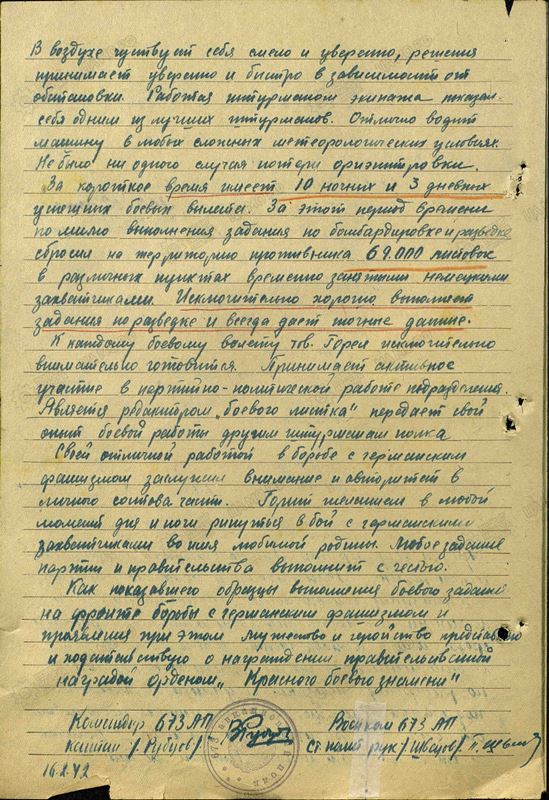 В воздухе чувствует себя смело и уверенно, решения
принимает уверенно и быстро в зависимости от
обстановки. Работая штурманом экипажа показал
себя одним из лучших штурманов. Отлично водит
машину в любых сложных метеорологических условиях.
Не было ни одного случая потери ориентировки.
За короткое время имеет 10 ночных и 3 дневных
успешных боевых вылета. За этот период времени
помимо выполнения задания по бомбардировке и разведке
сбросил на территорию противника 69.000 листовок
в различных пунктах временно занятыми немецкими
захватчиками. Исключительно хорошо выполняет
задания по разведке и всегда дает точные данные.
К каждому боевому вылету тов. исключительно
внимательно готовится. Принимает активное
участие в партийно-политической работе подразделения.
Является редактором „боевого листка" передает свой
опыт боевой работы другим штурманам полка
Своей отличной работой в борьбе с германским
фашизмом заслужил внимание и авторитет в
личного состава части. Горит желанием в любой
момент дня и ночи ринуться в бой с германскими
захватчиками во имя любимой родины. Любое задание
партии и правительства выполнит с честью.
Как показавшего образцы выполнения боевого задания
на фронте борьбы с германским фашизмом и
проявления при этом мужество и геройство представляю
и ходатайствую о награждении правительственной
наградой орденом „Красного боевого знамени"
Командир 673 АП Военком 673 АП
капитан /Рубцов/ ст. политрук /Швецов/
16.2.42